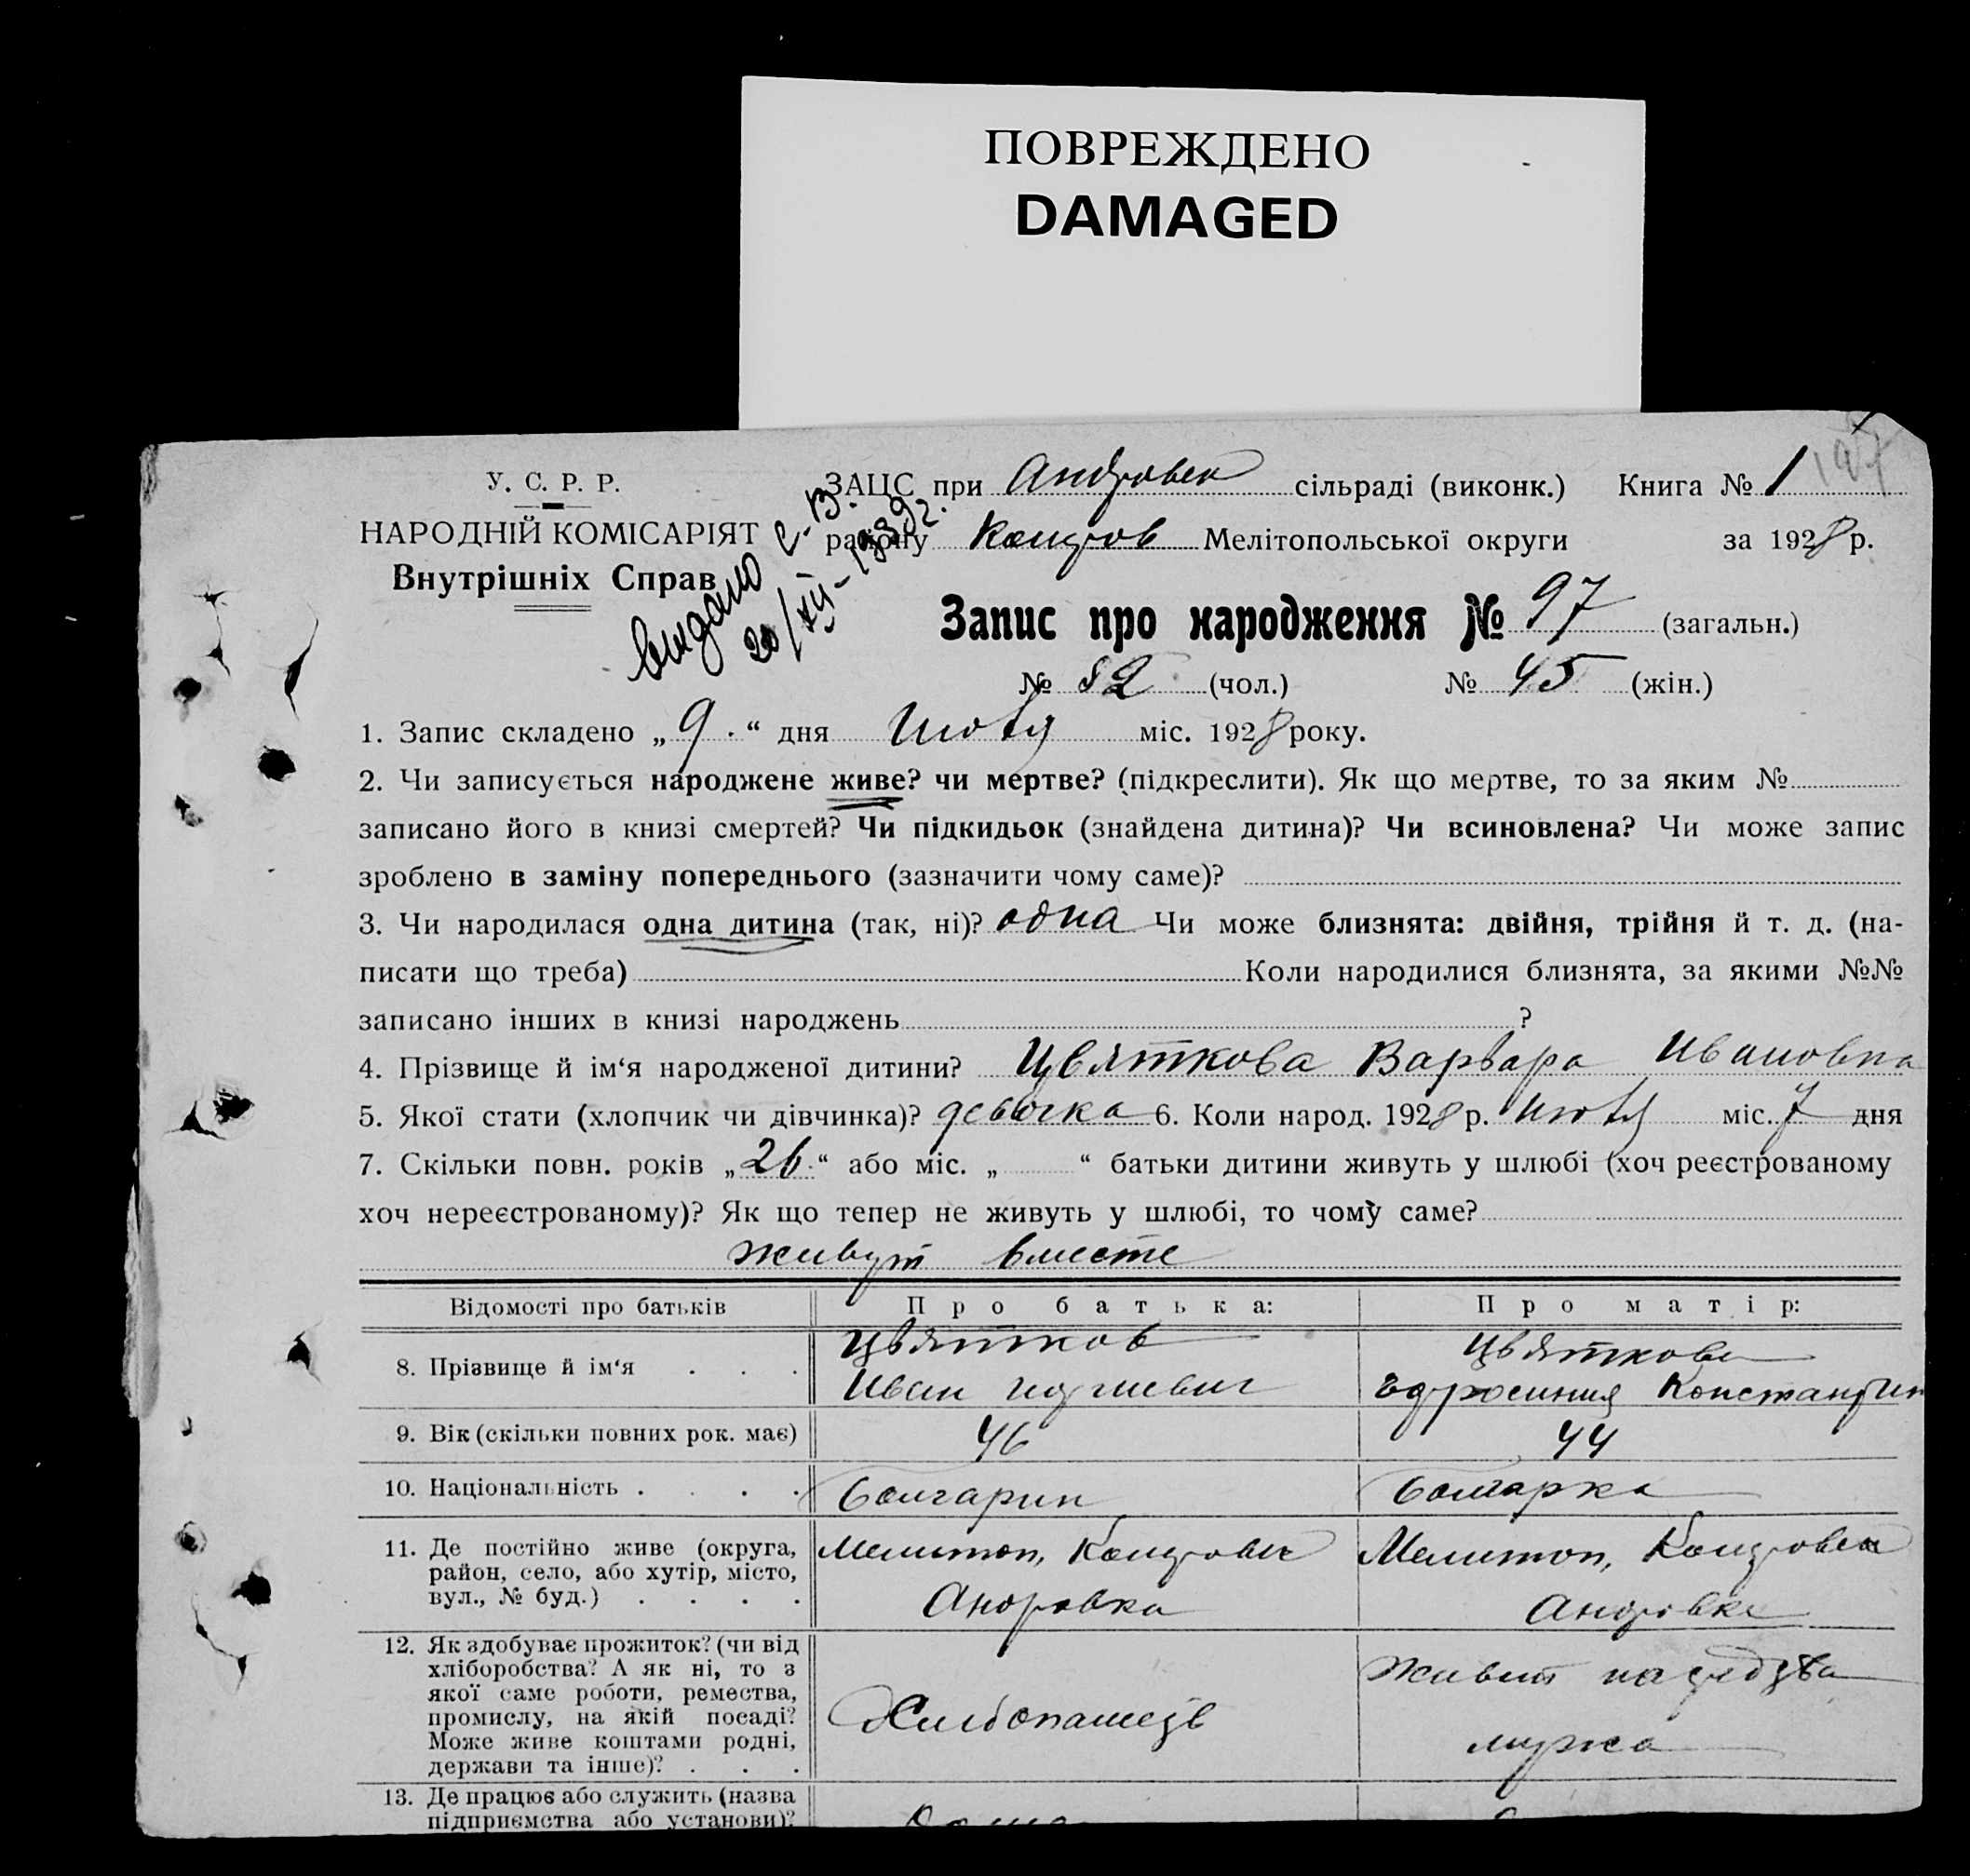 ПОВРЕЖДЕНО
DAMAGED
У. С. Р. Р.
НАРОДНІЙ КОМІСАРІЯТ
Внутрішніх Справ
видано с-в.
20/XII-1939г.
ЗАЦС при Андровск сільраді (виконк.) Книга № 1
району Коларов Мелітопольської округи за 1928 р.
Запис про народження № 97 (загальн.)
№ 52 (чол.) № 45 (жін.)
1. Запис складено „ 9 “ дня Июля міс. 1928 року.
2. Чи записується народжене живе? чи мертве? (підкреслити). Як що мертве, то за яким №
записано його в книзі смертей? Чи підкидьок (знайдена дитина)? Чи всиновлена? Чи може запис
зроблено в заміну попереднього (зазначити чому саме)?
3. Чи народилася одна дитина (так, ні)? одна Чи може близнята: двійня, трійня й т. д. (на-
писати що треба) Коли народилися близнята, за якими №№
записано інших в книзі народжень ?
4. Прізвище й ім‘я народженої дитини? Цвяткова Варвара Ивановна
5. Якої стати (хлопчик чи дівчинка)? девочка 6. Коли народ. 1928 р. Июля міс. 7 дня
7. Скільки повн. років „ 26 “ або міс. „ “ батьки дитини живуть у шлюбі (хоч реєстрованому
хоч нереєстрованому)? Як що тепер не живуть у шлюбі, то чому саме?
живут вместе
Відомості про батьків Про батька: Про матір:
8. Прізвище й ім‘я . . . Цвятков Цвяткова
Иван Евфросиния Константин
9. Вік (скільки повних рок. має) 46 44
10. Національність . . . . Болгарин Болгарка
11. Де постійно живе (округа, район, село, або хутір, місто, вул., № буд.) . . . . Мелитоп, Коларовск Мелитоп, Коларовск
Андровка Андровка
12. Як здобуває прожиток? (чи від хліборобства? А як ні, то з якої саме роботи, ремества, промислу, на якій посаді? Може живе коштами родні, держави та інше)? . . . Хлебопашец Живет на средства
мужа
13. Де працює або служить (назва
підприємства або установи)?